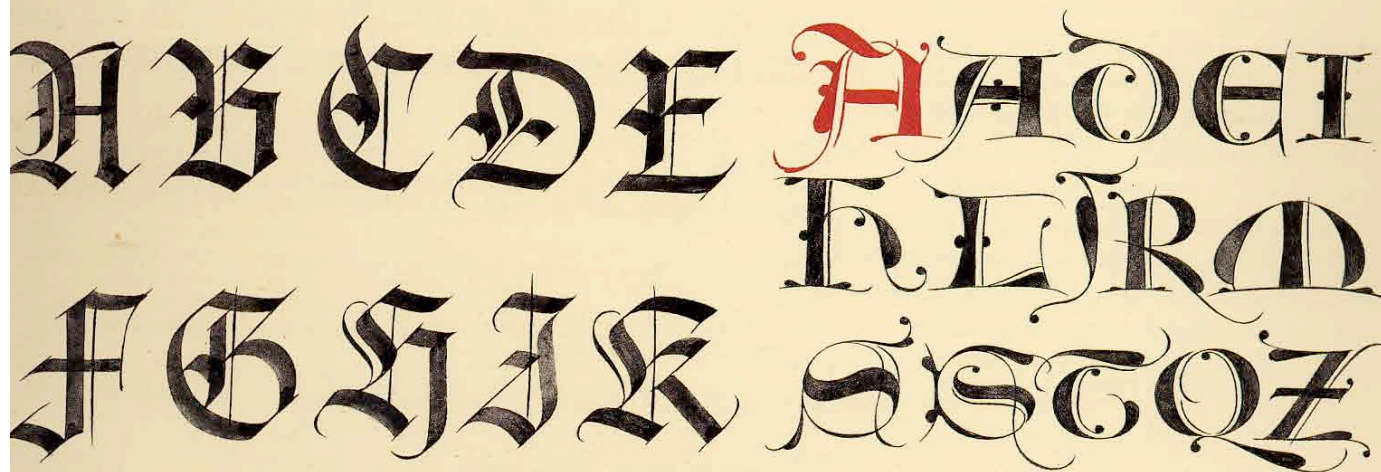 A B C D E
F G H I K
A A D E I
H L I R M
S S T Q Z